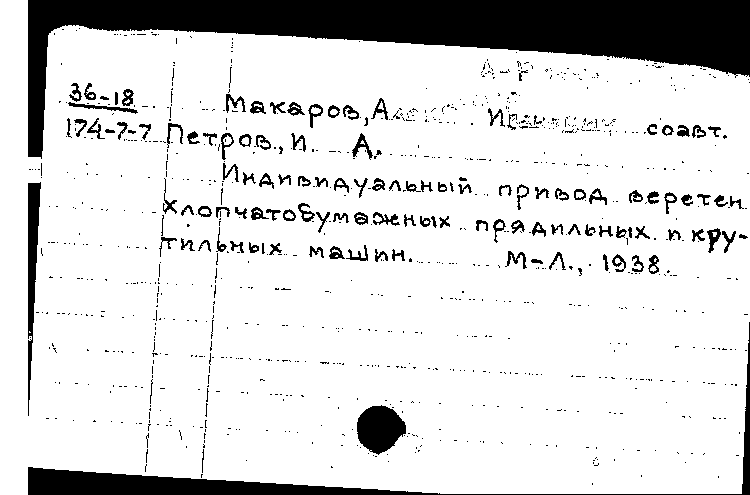 36-18
Макаров, Иванович соавт.
174-7-7 Петров, И. А.
Индивидуальный привод веретен
хлопчатобумажных прядильных и кру-
тильных машин. М-Л., 1938.